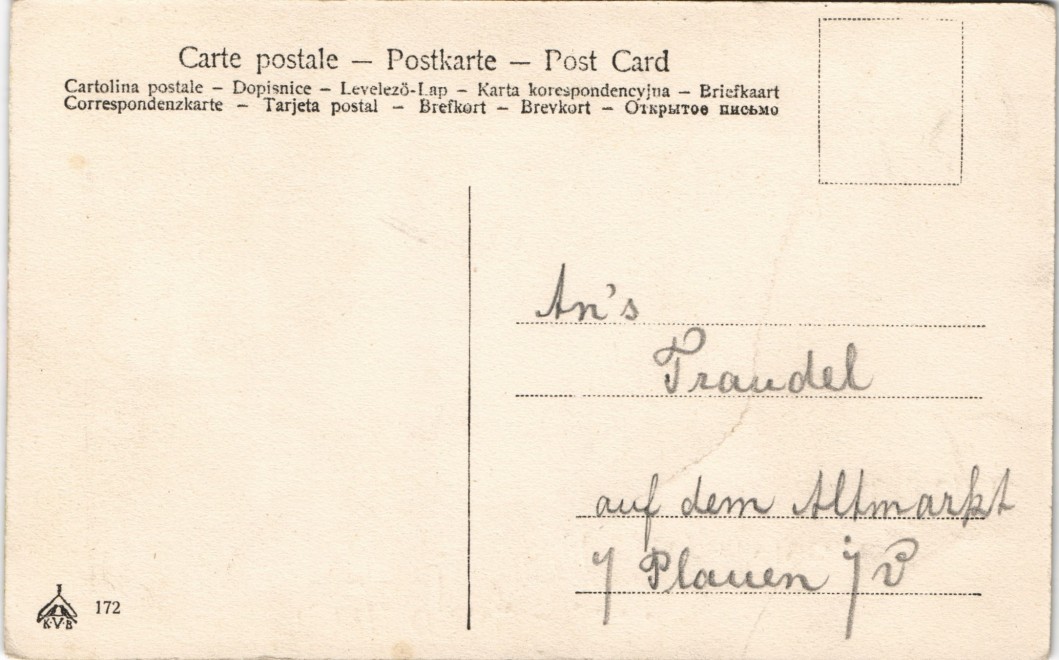 Carte postale — Postkarte — Post Card
Cartolina postale – Dopisnice – Levelező-Lap – Karta korespondencyjna – Briefkaart
Correspondenzkarte – Tarjeta postal – Brefkort – Brevkort – Открытое письмо
An's
Traudel
auf dem Altmarkt
j Plauen j V
K.V.B
172